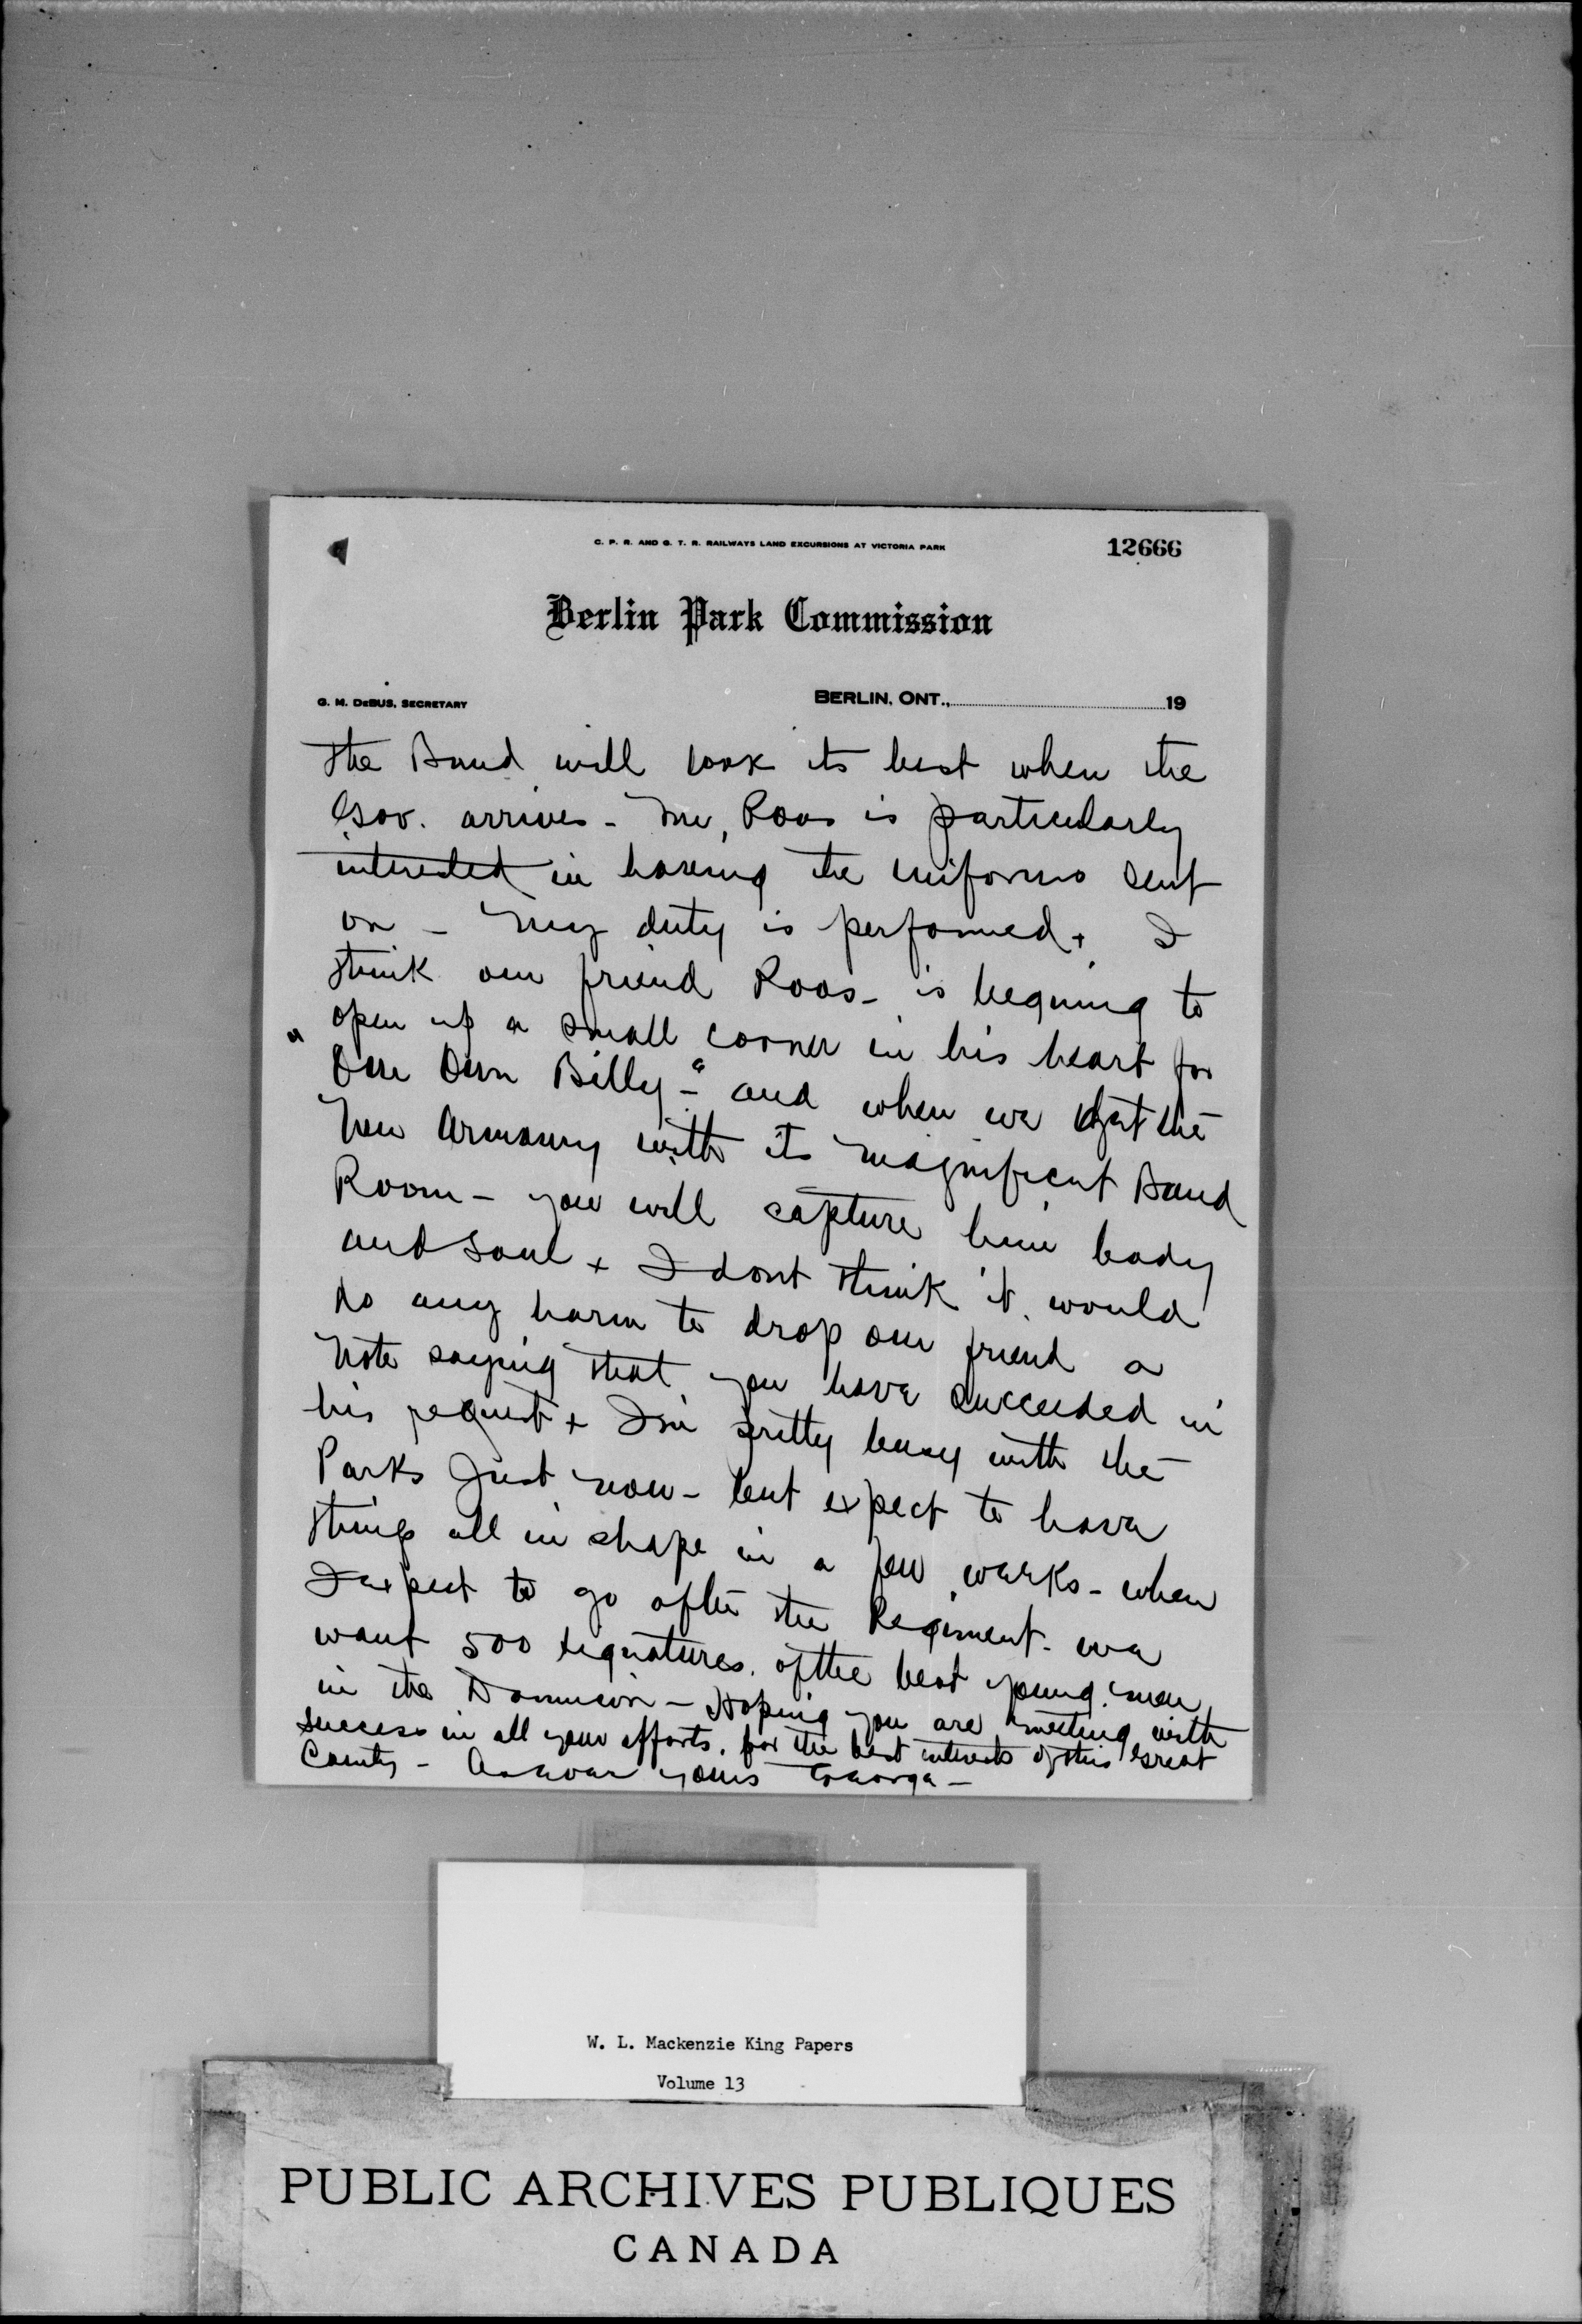 C. P. R. AND G. T. R. RAILWAYS LAND EXCURSIONS AT VICTORIA PARK
12666
Berlin Park Commission
G. M. DeBUS, SECRETARY
BERLIN, ONT., 19
the Band will look its best when the
Gov. arrives - Mr, Roos is particularly
interested in having the uniforms sent
on - My duty is performed + I
think our friend Roos - is begining to
open up a small corner in his heart for
"Our Own Billy -" and when we get the
New Armoury with its magnificent Band
Room - you will capture him body
and soul + I dont think it would
do any harm to drop our friend a
Note saying that you have succeeded in
his request + I'm pretty busy with the
Parks Just now - but expect to have
things all in shape in a few weeks - when
I expect to go after the Regiment - we
want 500 signatures. of the best young men
in the Dominion - Hoping you are meeting with
success in all your efforts. for the best interests of this Great
County - As ever yours George -
W. L. Mackenzie King Papers
Volume 13
PUBLIC ARCHIVES PUBLIQUES
CANADA